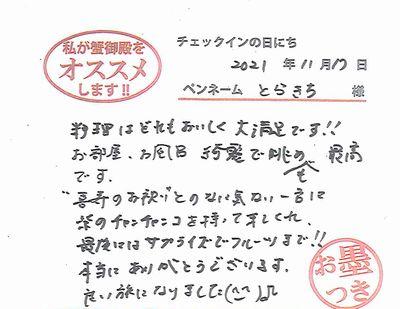 私が蟹御殿を
オススメ
します!!
チェックインの日にち
2021 年 11 月 17 日
ペンネーム とらきち 様
料理はどれもおいしく大満足です!!
お部屋、お風呂 綺麗で眺めも 最高
です.
"喜寿のお祝い"とのなに気ない一言に
紫のチャンチャンコを持って来てくれ
最後にはサプライズでフルーツまで!!
本当にありがとうございます.
良い旅になりました(^^)
お墨
つき